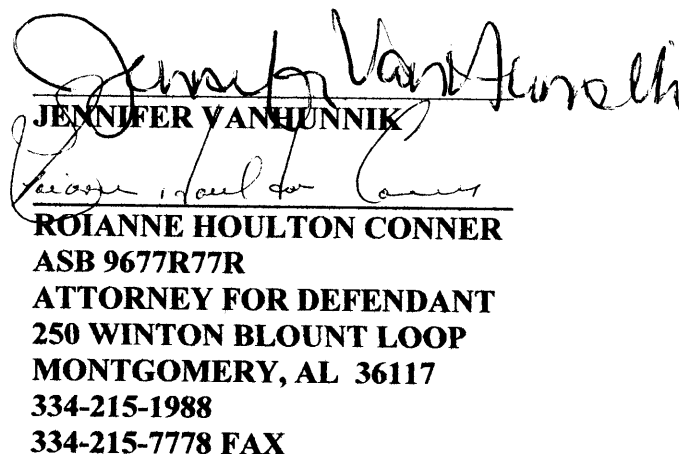 Jennifer VanHunnik
JENNIFER VANHUNNIK
Roianne Houlton Conner
ROIANNE HOULTON CONNER
ASB 9677R77R
ATTORNEY FOR DEFENDANT
250 WINTON BLOUNT LOOP
MONTGOMERY, AL 36117
334-215-1988
334-215-7778 FAX